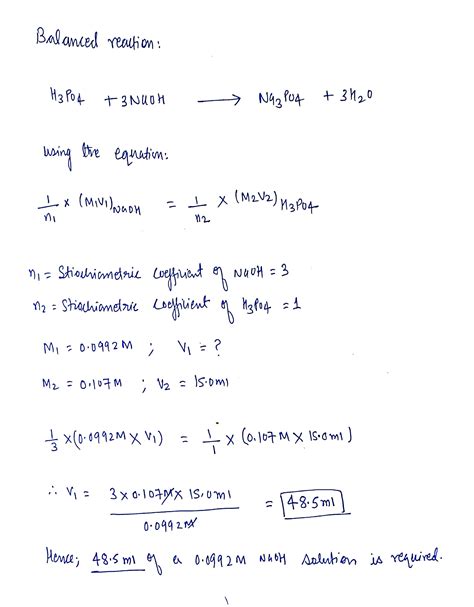 Balanced reaction:
H3PO4 + 3NaOH ⟶ Na3PO4 + 3H2O
using the equation:
1/n1 × (M1V1)NaOH = 1/n2 × (M2V2)H3PO4
n1 = Stiochiometric coefficient of NaOH = 3
n2 = Stiochiometric coefficient of H3PO4 = 1
M1 = 0.0992M ; V1 = ?
M2 = 0.107M ; V2 = 15.0ml
1/3 × (0.0992M × V1) = 1/1 × (0.107M × 15.0ml)
∴ V1 = 3 × 0.107M × 15.0ml / 0.0992M = 48.5ml
Hence; 48.5ml of a 0.0992M NaOH solution is required.